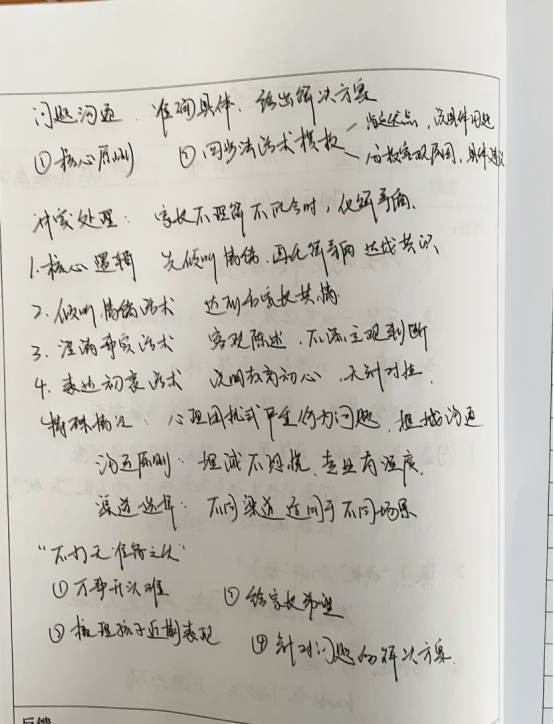 问题沟通：准确具体、给出解决方案
①核心原则 ②四步法话术模板 指定优点，说具体问题
客观原因，具体建议
冲突处理：家长不理解不配合时，化解矛盾.
1.核心逻辑 先倾听情绪.再化解矛盾 达成共识
2.倾听情绪话术 达到和家长共情.
3.澄清事实话术 客观陈述，不添主观判断
4.表达初衷话术 说明教育初心，无针对性.
特殊情况：心理困扰或严重行为问题，坦诚沟通
沟通原则：坦诚不恐慌.专业有温度.
渠道选择：不同渠道适用于不同场景
“不打无准备之仗”
①万事开头难 ②给家长希望
③梳理孩子近期表现 ④针对问题的解决方案.
反馈